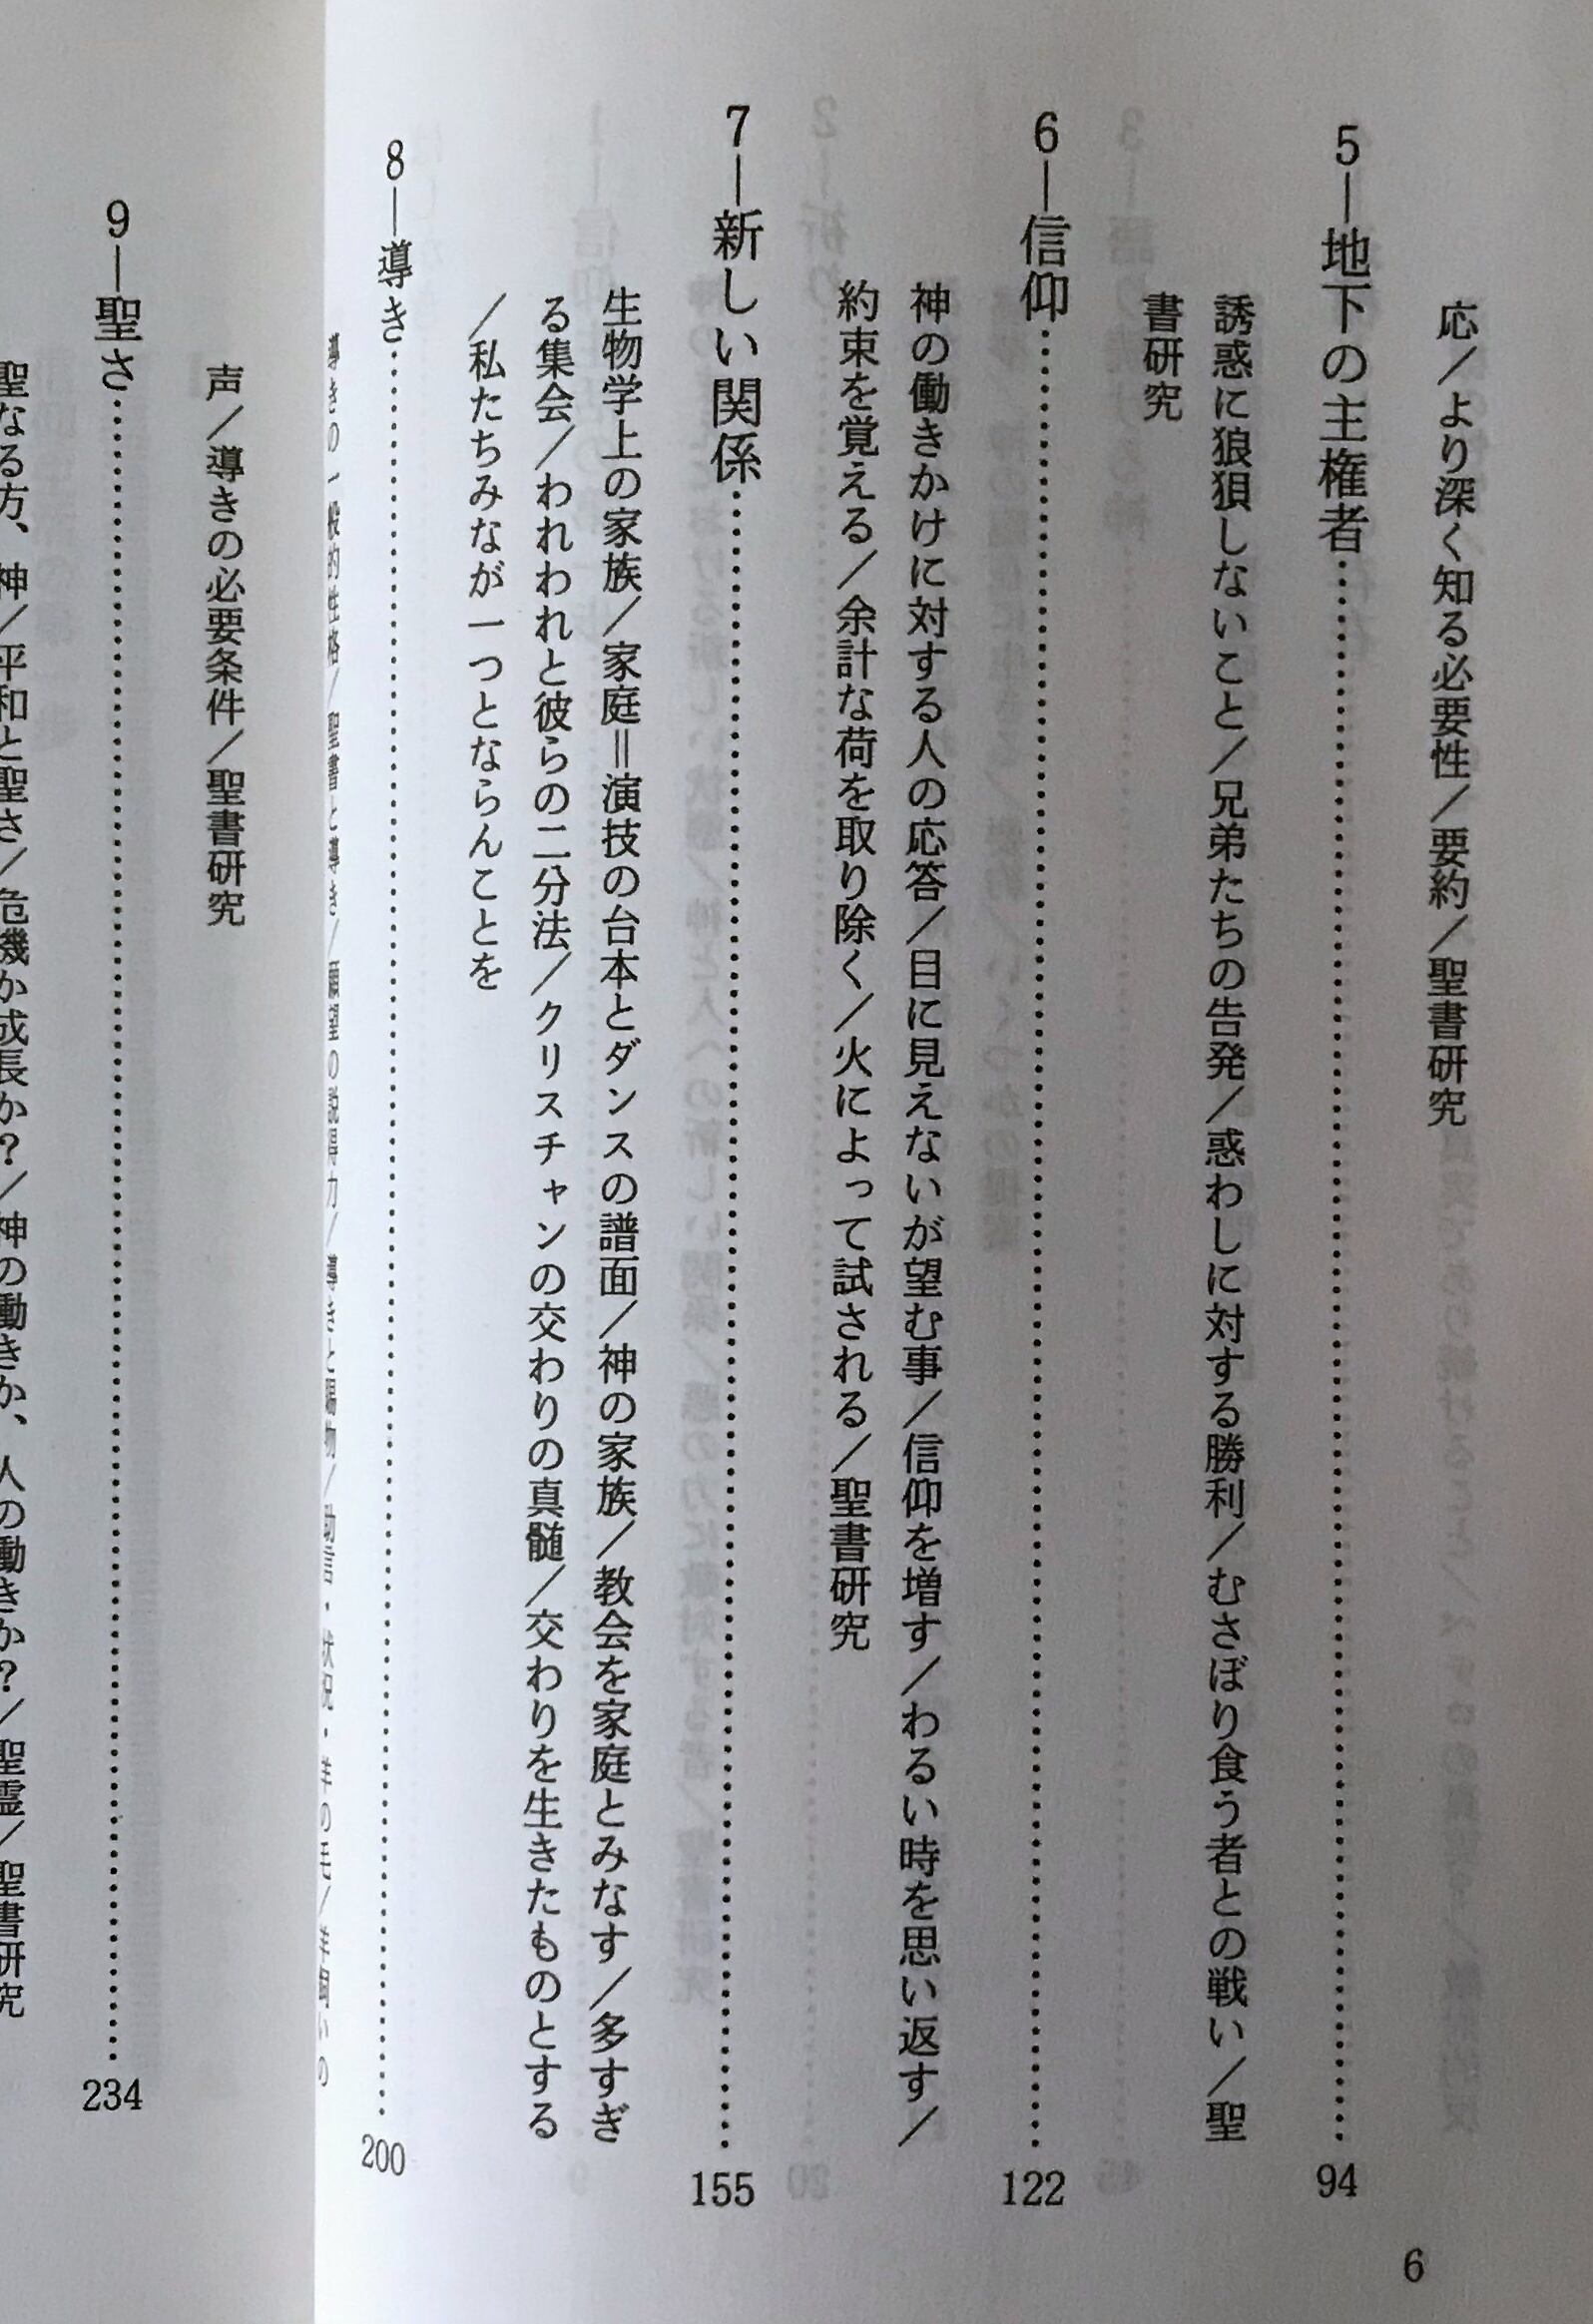 応／より深く知る必要性／要約／聖書研究
5―地下の主権者……………………94
誘惑に狼狽しないこと／兄弟たちの告発／惑わしに対する勝利／むさぼり食う者との戦い／聖
書研究
6―信仰……………………122
神の働きかけに対する人の応答／目に見えないが望む事／信仰を増す／わるい時を思い返す／
約束を覚える／余計な荷を取り除く／火によって試される／聖書研究
7―新しい関係……………………155
生物学上の家族／家庭＝演技の台本とダンスの譜面／神の家族／教会を家庭とみなす／多すぎ
る集会／われわれと彼らの二分法／クリスチャンの交わりの真髄／交わりを生きたものとする
／私たちみなが一つとならんことを
8―導き……………………200
導きの一般的性格／聖書と導き／願望の説得力／導きと賜物／助言・状況・羊の毛／羊飼いの
6
声／導きの必要条件／聖書研究
9―聖さ……………………234
聖なる方、神／平和と聖さ／危機か成長か？／神の働きか、人の働きか？／聖霊／聖書研究